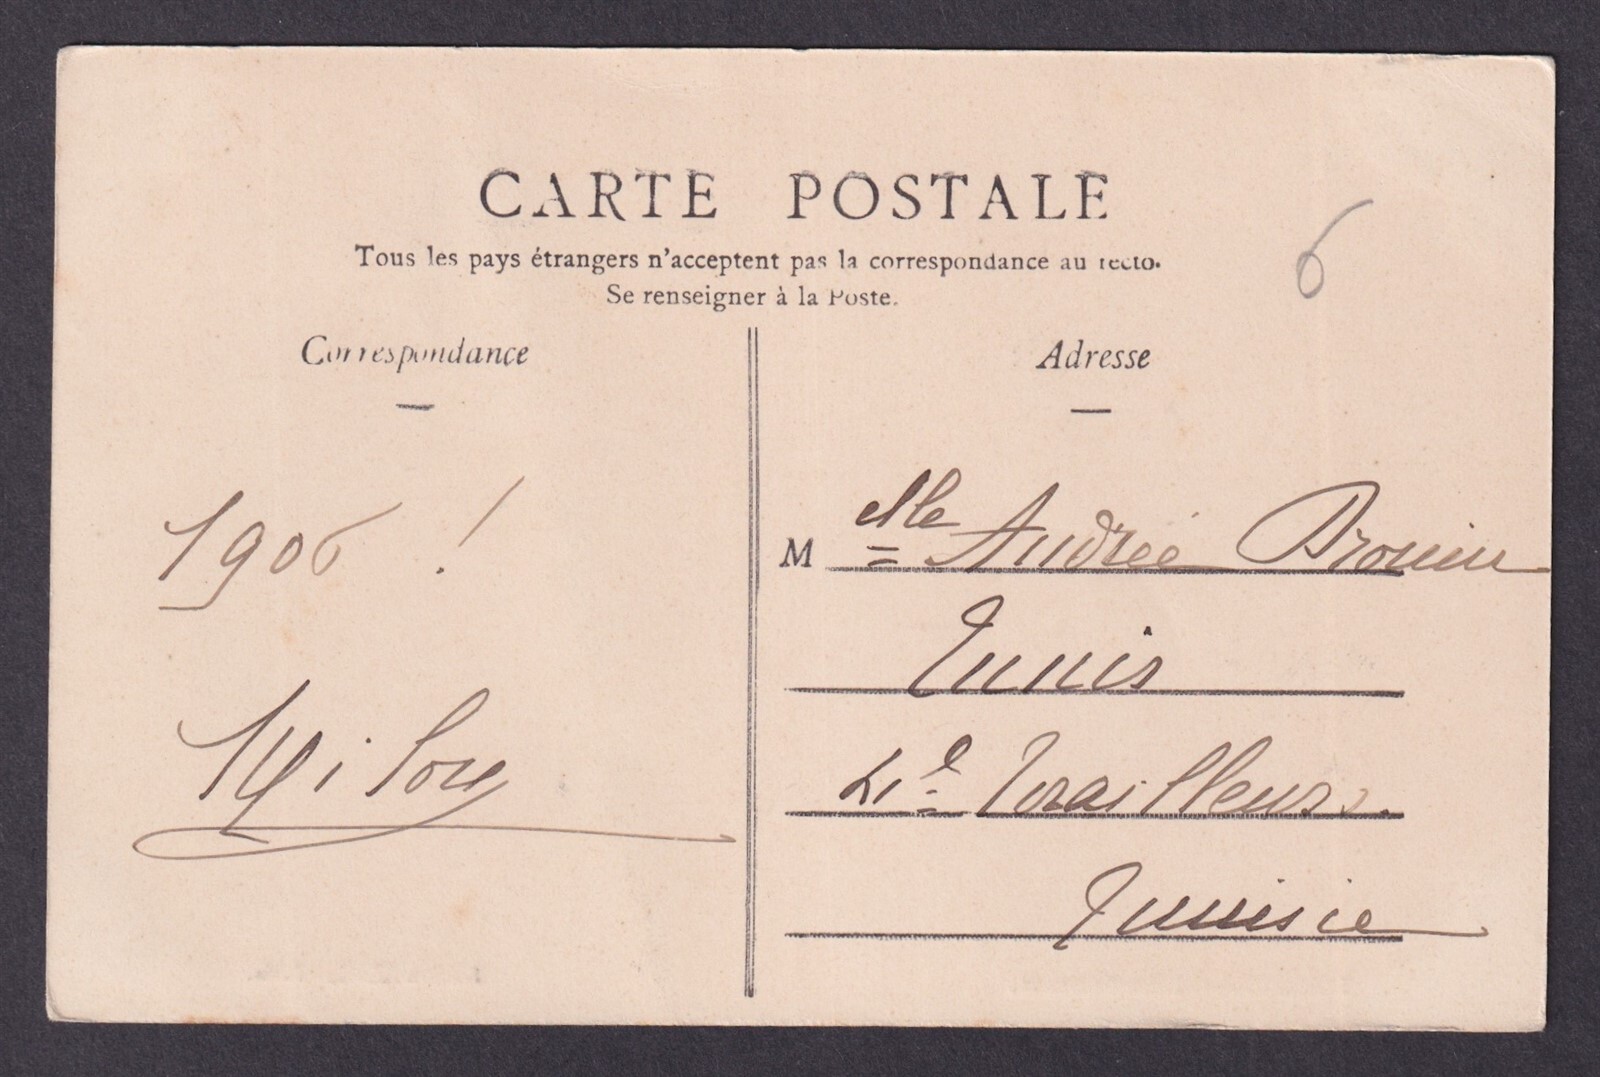 CARTE POSTALE
Tous les pays étrangers n'acceptent pas la correspondance au recto.
Se renseigner à la Poste.
6
Correspondance
Adresse
1906 !
M elle Andrée
Tunis
Tirailleurs
Tunisie